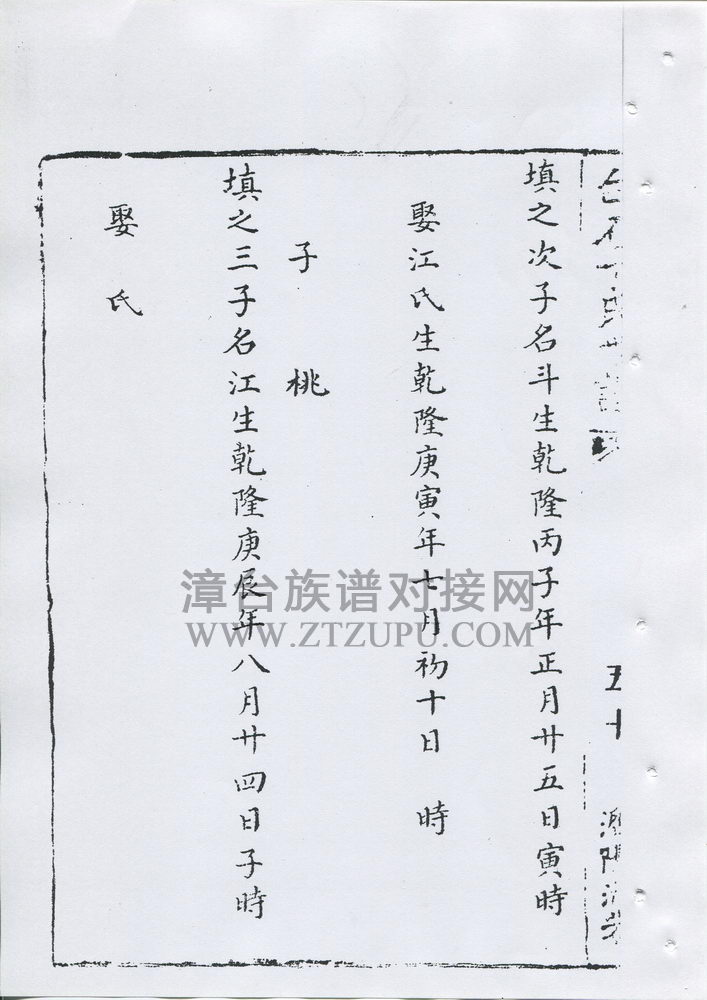 五十
填之次子名斗生乾隆丙子年正月廿五日寅時
娶江氏生乾隆庚寅年七月初十日 時
子 桃
填之三子名江生乾隆庚辰年八月廿四日子時
娶 氏
漳台族谱对接网
WWW.ZTZUPU.COM